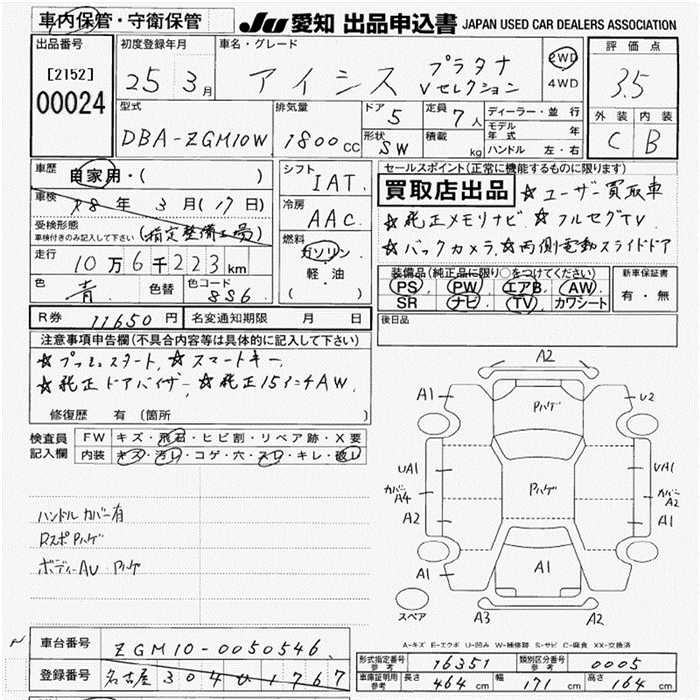 車内保管・守衛保管
JU 愛知 出品申込書 JAPAN USED CAR DEALERS ASSOCIATION
出品番号
[2152]
00024
初度登録年月
25 3月
車名・グレード
アイシス プラタナ
Vセレクション
2WD
4WD
評価点
3.5
外装 内装
C B
型式
DBA-ZGM10W
排気量
1800cc
ドア 5
形状 SW
定員 7人
積載 kg
ディーラー・並行
モデル年式 年
ハンドル 左・右
車歴 自家用・( )
車検 R8年 3月(17日)
受検形態
車検付きのみ記入して下さい (指定整備工場)
走行
10万6千223km
色 青 色替 色コード 8S6
シフト
IAT
冷房
AAC
燃料
ガソリン
軽・油
( )
セールスポイント(正常に機能するものに限ります)
買取店出品 ☆ユーザー買取車
☆純正メモリナビ ☆フルセグTV
☆バックカメラ ☆両側電動スライドドア
装備品(純正品に限り○をつけてください)
PS PW エアB. AW
SR ナビ TV カワシート
新車保証書
有・無
R券 11650円 名変通知期限 月 日
後日品
注意事項申告欄(不具合内容等は具体的に記入して下さい)
☆プッシュスタート ☆スマートキー
☆純正ドアバイザー ☆純正15インチAW
修復歴 有(箇所 )
検査員記入欄
FW キズ・飛石・ヒビ割・リペア跡・X要
内装 キズ・汚レ・コゲ・穴・スレ・キレ・破レ
ハンドルカバー有
RスポPハゲ
ボディーAU Pハゲ
A2
A1 Pハゲ U2
UA1 Pハゲ UA1
カバーA4 カバーA2
A2 A1
A1 A1 A1
スペア A3 A2 A2
A-キズ E-エクボ U-凹み W-補修跡 S-サビ C-腐食 XX-交換済
車台番号 ZGM10-0050546
登録番号 名古屋 304 U 1767
形式指定番号 参考 16351 類別区分番号 参考 0005
車庫証明用参考 長さ 464cm 幅 171cm 高さ 164cm